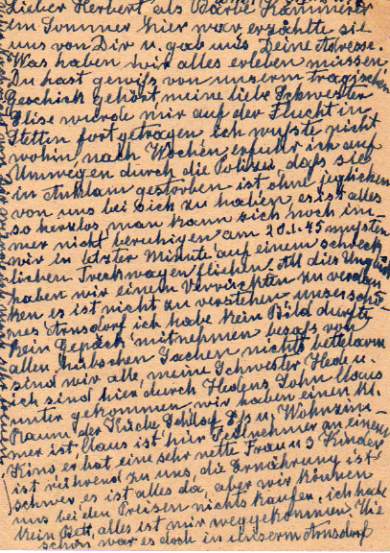 Lieber Herbert als Bärbel Kämmerer
im Sommer hier war erzählte sie
uns von Dir u. gab uns Deine Adresse.
Was haben wir alles erleben müssen
Du hast gewiß von unserm tragischen
Geschick gehört, meine liebe Schwester
Elise wurde mir auf der Flucht in
Stettin fortgetragen ich wußte nicht
wohin, nach Wochen erfuhr ich auf
Umwegen durch die Polizei, daß sie
in Anklam gestorben ist ohne jeglichen
von uns bei sich zu haben, es ist alles
so herzlos, man kann sich noch im-
mer nicht beruhigen am 20.1.45 mußten
wir in letzter Minute auf einem schreck
lichen Treckwagen fliehen. All dies Unglück
haben wir einem Verrückten zu verdan
ken es ist nicht zu verstehen unser schö-
nes Arnsdorf ich habe kein Bild durfte
kein Gepäck mitnehmen besaß von
allen hübschen Sachen nichts bettelarm
sind wir alle, meine Schwester Hede u.
ich sind hier durch Hedens Sohn Claus
unter gekommen, wir haben einen kl.
Raum, der Küche, Schlaf, Eß u. Wohnzim-
mer ist, Claus ist hier Teilnehmer an einem
Kino er hat eine sehr nette Frau u 3 Kinder
ist rührend zu uns, die Ernährung ist
schwer, es ist alles da, aber wir können
uns bei den Preisen nichts kaufen, ich habe
kein Bett, alles ist mir weggekommen. Wie
schön war es doch in unserm Arnsdorf